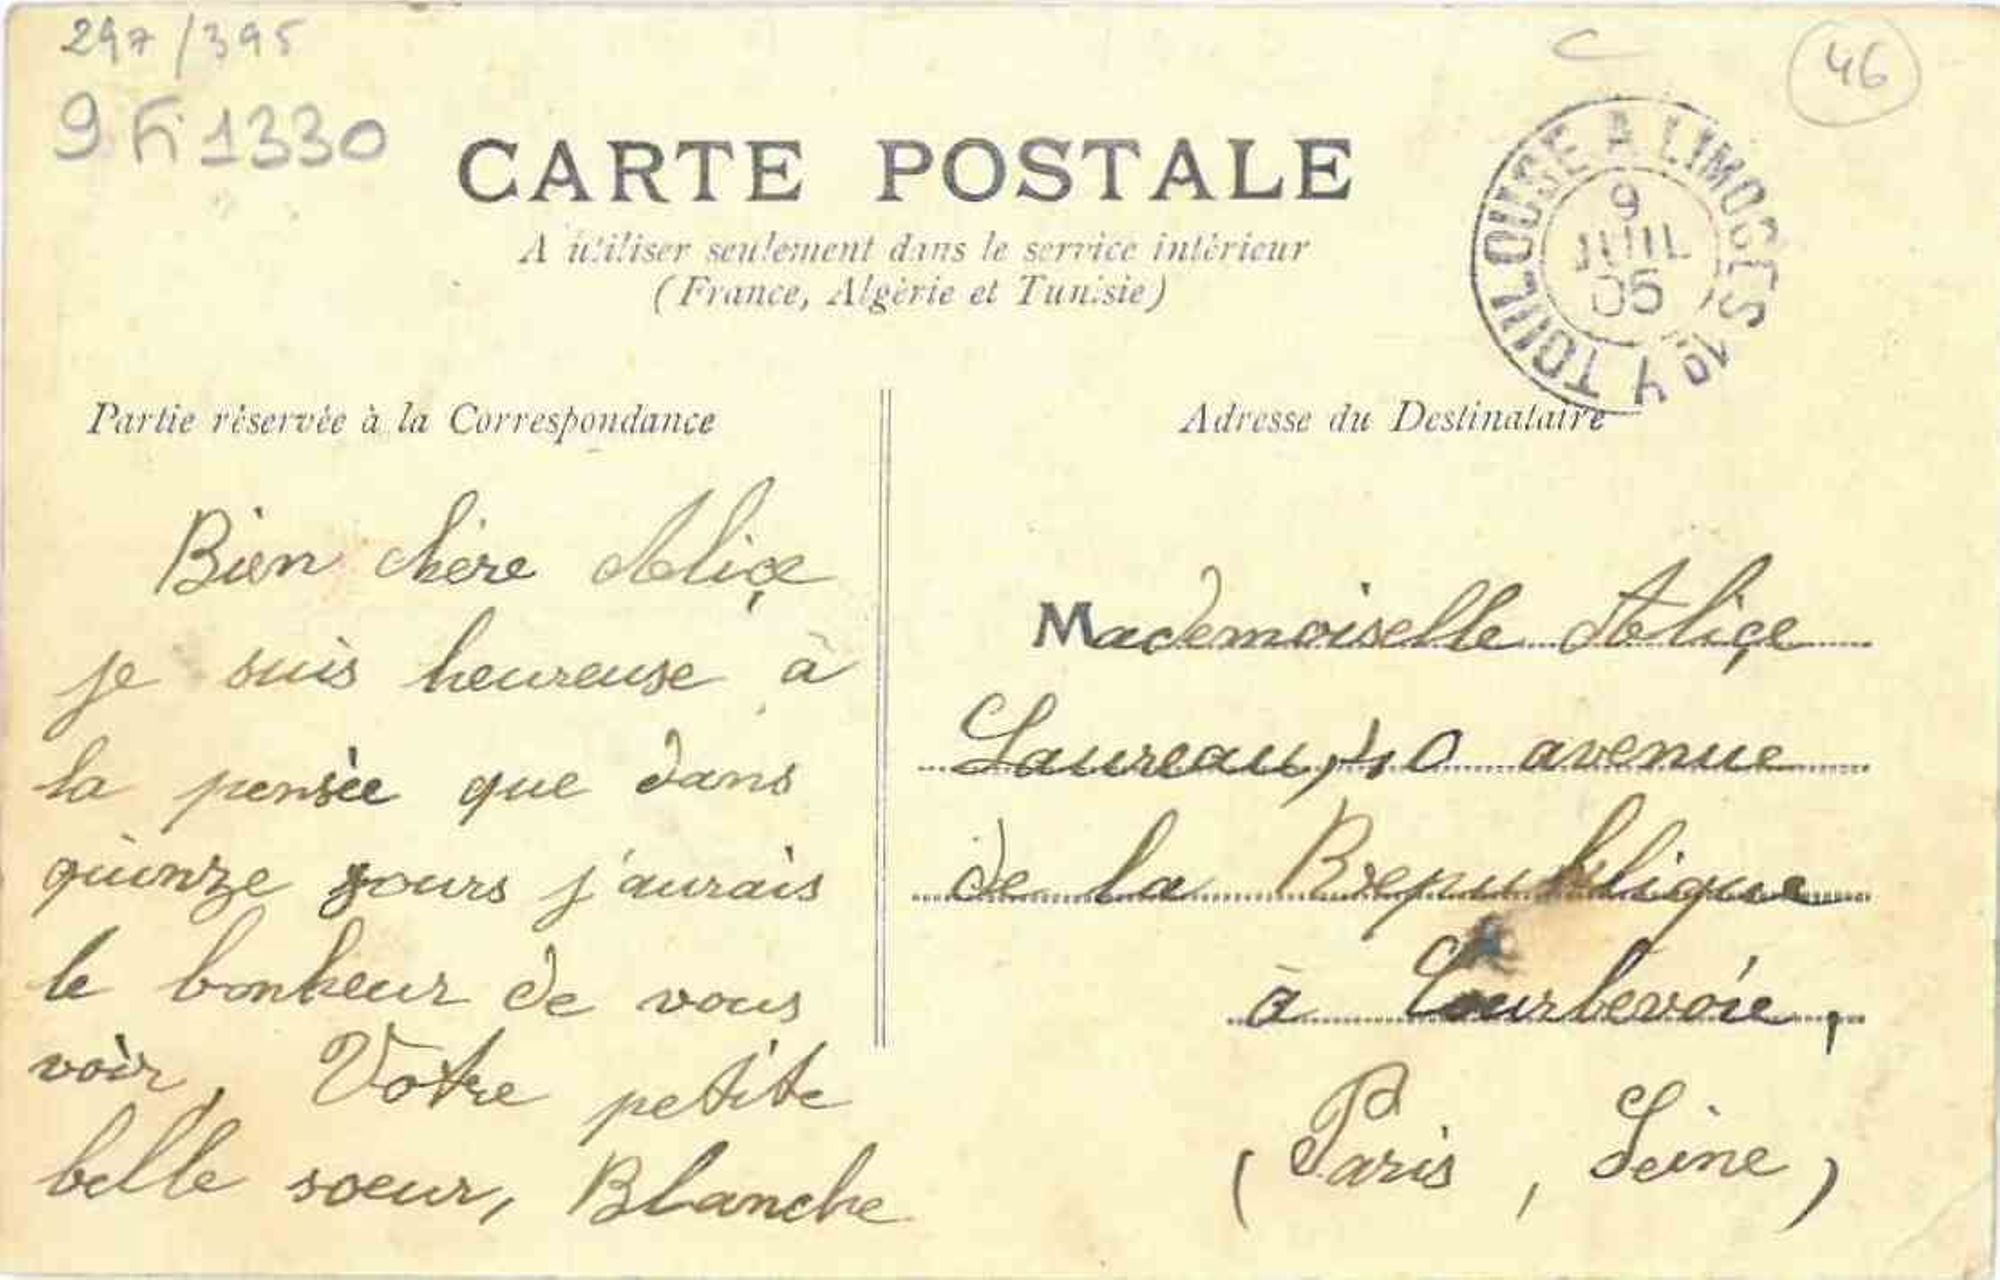 297/395
9 Fi 1330
46
CARTE POSTALE
A utiliser seulement dans le service intérieur
(France, Algérie et Tunisie)
TOULOUSE A LIMOGES 1º
9
JUIL
05
Partie réservée à la Correspondance
Bien chère Aliçe
je suis heureuse à
la pensée que dans
quinze jours j'aurais
le bonheur de vous
voir, Votre petite
belle soeur, Blanche
Adresse du Destinataire
Mademoiselle Aliçe
Laureau, 40 avenue
de la Republique
à Courbevoie,
(Paris, Seine)